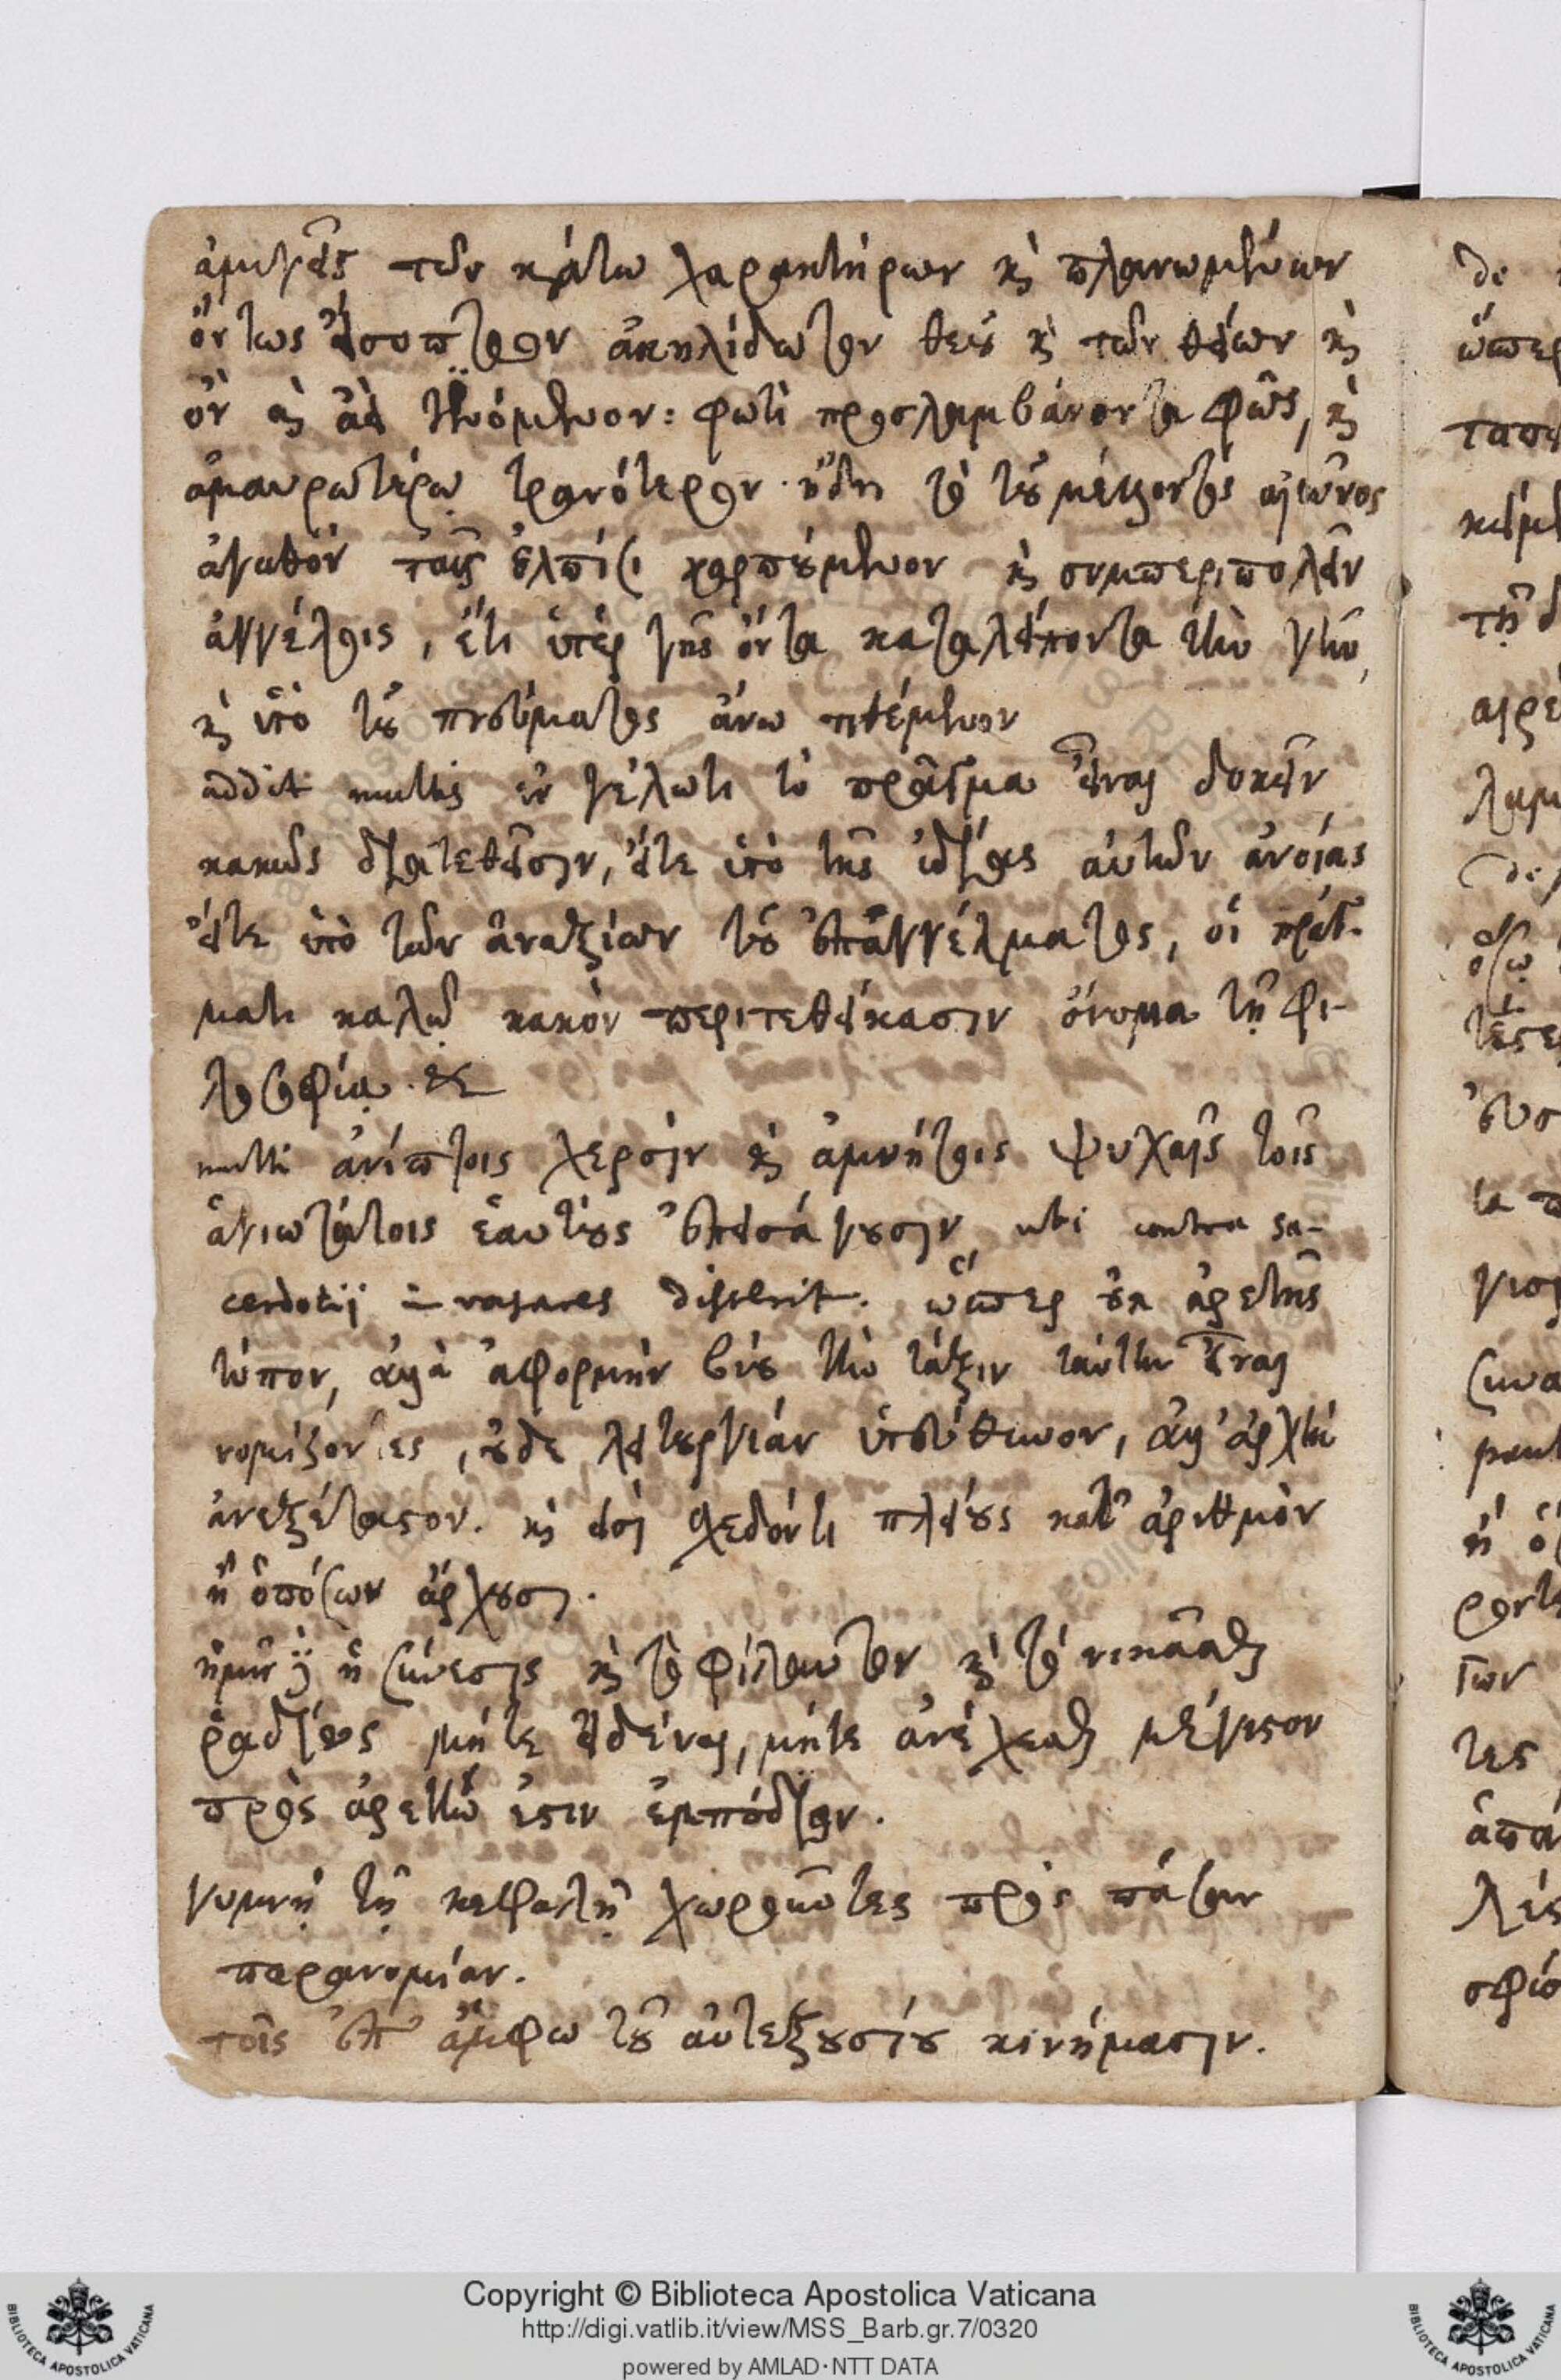 ἀμιγεῖς τῶν κάτω χαρακτήρων καὶ πλανωμένων
ὄντως ἔσοπτρον ἀκηλίδωτον θεοῦ καὶ τῶν θείων καὶ
ὂν καὶ ἀεὶ γινόμενον: φωτὶ προσλαμβάνοντα φῶς, καὶ
ἀμαυροτέρῳ τρανότερον. ἤδη τὸ τοῦ μέλλοντος αἰῶνος
ἀγαθὸν ταῖς ἐλπίσι καρπούμενον καὶ συμπεριπολεῖν
ἀγγέλοις, ἔτι ὑπὲρ γῆς ὄντα καταλείποντα τὴν γῆν,
καὶ ὑπὸ τοῦ πνεύματος ἄνω τιθέμενον
addit multis ἐν γέλωτι τὸ πρᾶγμα εἶναι δοκεῖν
κακῶς διατεθεῖσιν, εἴτε ὑπὸ τῆς ἰδίας αὐτῶν ἀνοίας
εἴτε ὑπὸ τῶν ἀναξίων τοῦ ἐπαγγέλματος, οἳ πράγ-
ματι καλῷ κακὸν περιτεθείκασιν ὄνομα τῇ φι-
λοσοφίᾳ. &c
multi ἀνίπτοις χερσὶν καὶ ἀμυήτοις ψυχαῖς τοῖς
ἁγιωτάτοις ἑαυτοὺς ἐπεισάγουσιν ubi contra sa-
cerdotij disserit. ὥσπερ οὐκ ἀρετῆς
τύπον, ἀλλὰ ἀφορμὴν βίου τὴν τάξιν ταύτην εἶναι
νομίζοντες, οὐδὲ λειτουργίαν ὑπεύθυνον, ἀλλ' ἀρχὴν
ἀνεξέταστον. καὶ εἰσὶ σχεδόν τι πλείους κατ' ἀριθμὸν
ἢ ὁπόσων ἄρχουσι.
ἡμῖν δὲ ἡ σύνεσις καὶ τὸ φίλαυτον καὶ τὸ νικᾶσθαι
ῥαδίως μήτε εἰδέναι, μήτε ἀνέχεσθαι μέγιστον
πρὸς ἀρετήν ἐστιν ἐμπόδιον.
γυμνῇ τῇ κεφαλῇ χωροῦντες πρὸς πᾶσαν
παρανομίαν.
τοῖς ἐπ' ἄμφω τοῦ αὐτεξουσίου κινήμασιν.
Copyright © Biblioteca Apostolica Vaticana
http://digi.vatlib.it/view/MSS_Barb.gr.7/0320
powered by AMLAD·NTT DATA
BIBLIOTECA APOSTOLICA VATICANA
BIBLIOTECA APOSTOLICA VATICANA